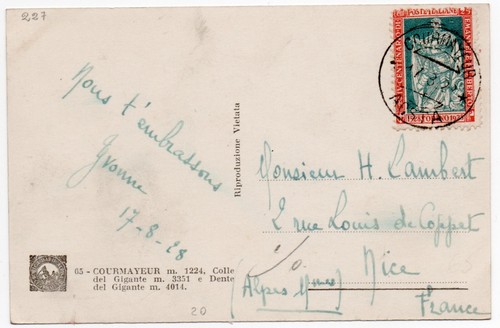 227
Nous t'embrassons
Yvonne
17-8-28
65 - COURMAYEUR m. 1224, Colle
del Gigante m. 3351 e Dente
del Gigante m. 4014.
20
Riproduzione Vietata
POSTE ITALIANE
EMANUELE FILIBERTO
COURMAYEUR
AOSTA
Monsieur H. Lambert
2 rue Louis de Coppet
Nice
(Alpes Mmes)
France